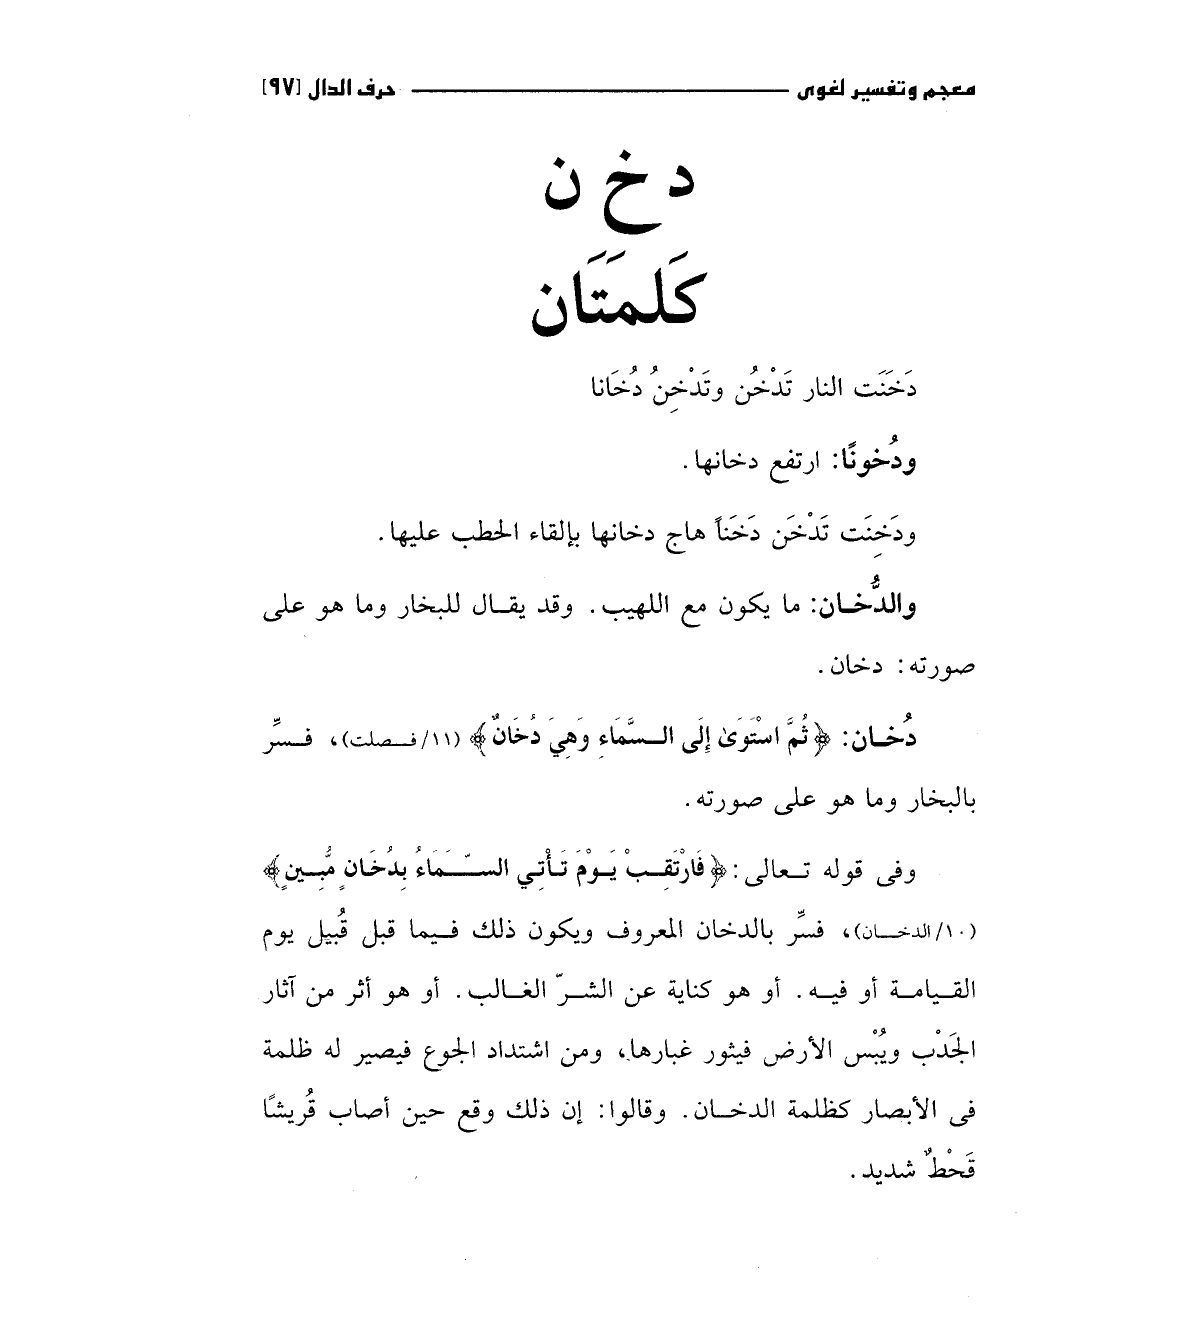 معجم وتفسير لغوى حرف الدال [٩٧]
د خ ن
كَلمَتَان
دَخَنَت النار تَدْخُن وتَدْخِنُ دُخَانا
ودُخونًا: ارتفع دخانها.
ودَخِنَت تَدْخَن دَخَناً هاج دخانها بإلقاء الحطب عليها.
والدُّخـان: ما يكون مع اللهيب. وقد يقـال للبخار وما هو على
صورته: دخان.
دُخـان: ﴿ثُمَّ اسْتَوَىٰ إِلَى السَّمَاءِ وَهِيَ دُخَانٌ﴾ (١١/فـصلت)، فـسِّر
بالبخار وما هو على صورته.
وفى قوله تـعالى: ﴿فَارْتَقِبْ يَـوْمَ تَـأْتِي السَّـمَاءُ بِدُخَانٍ مُّبِـينٍ﴾
(١٠/الدخـان)، فسِّر بالدخان المعروف ويكون ذلك فـيما قبل قُبيل يوم
القـيامـة أو فيـه. أو هو كناية عن الشـرّ الغـالب. أو هو أثر من آثار
الجَدْب ويُبْس الأرض فيثور غبارها، ومن اشتداد الجوع فيصير له ظلمة
فى الأبصار كظلمة الدخـان. وقالوا: إن ذلك وقع حين أصاب قُريشًا
قَحْطٌ شديد.